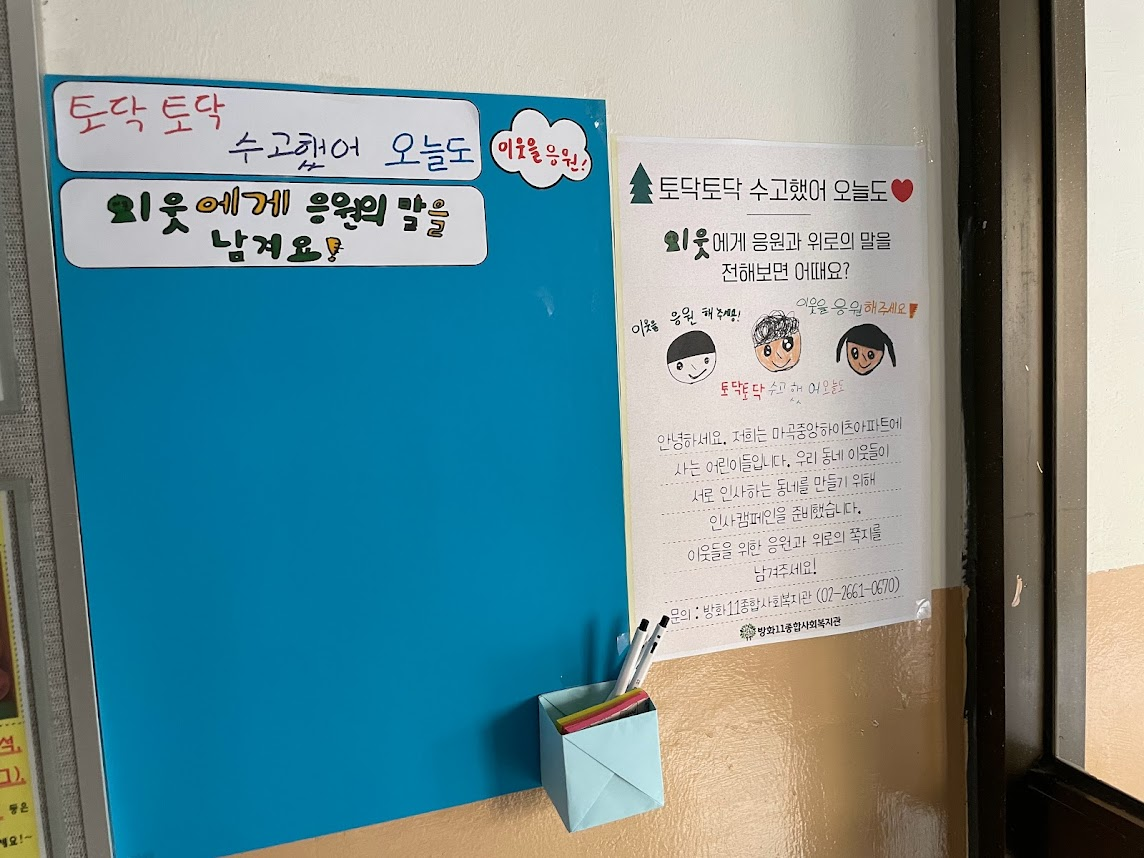 토닥 토닥
수고했어 오늘도
이웃을 응원!
이웃에게 응원의 말을
남겨요!
토닥토닥 수고했어 오늘도
이웃에게 응원과 위로의 말을
전해보면 어때요?
이웃을 응원 해주세요!
이웃을 응원해주세요!
토닥토닥 수고했어오늘도
안녕하세요. 저희는 마곡중앙하이츠아파트에
사는 어린이들입니다. 우리 동네 이웃들이
서로 인사하는 동네를 만들기 위해
인사캠페인을 준비했습니다.
이웃들을 위한 응원과 위로의 쪽지를
남겨주세요!
문의 : 방화11종합사회복지관 (02-2661-0670)
방화11종합사회복지관